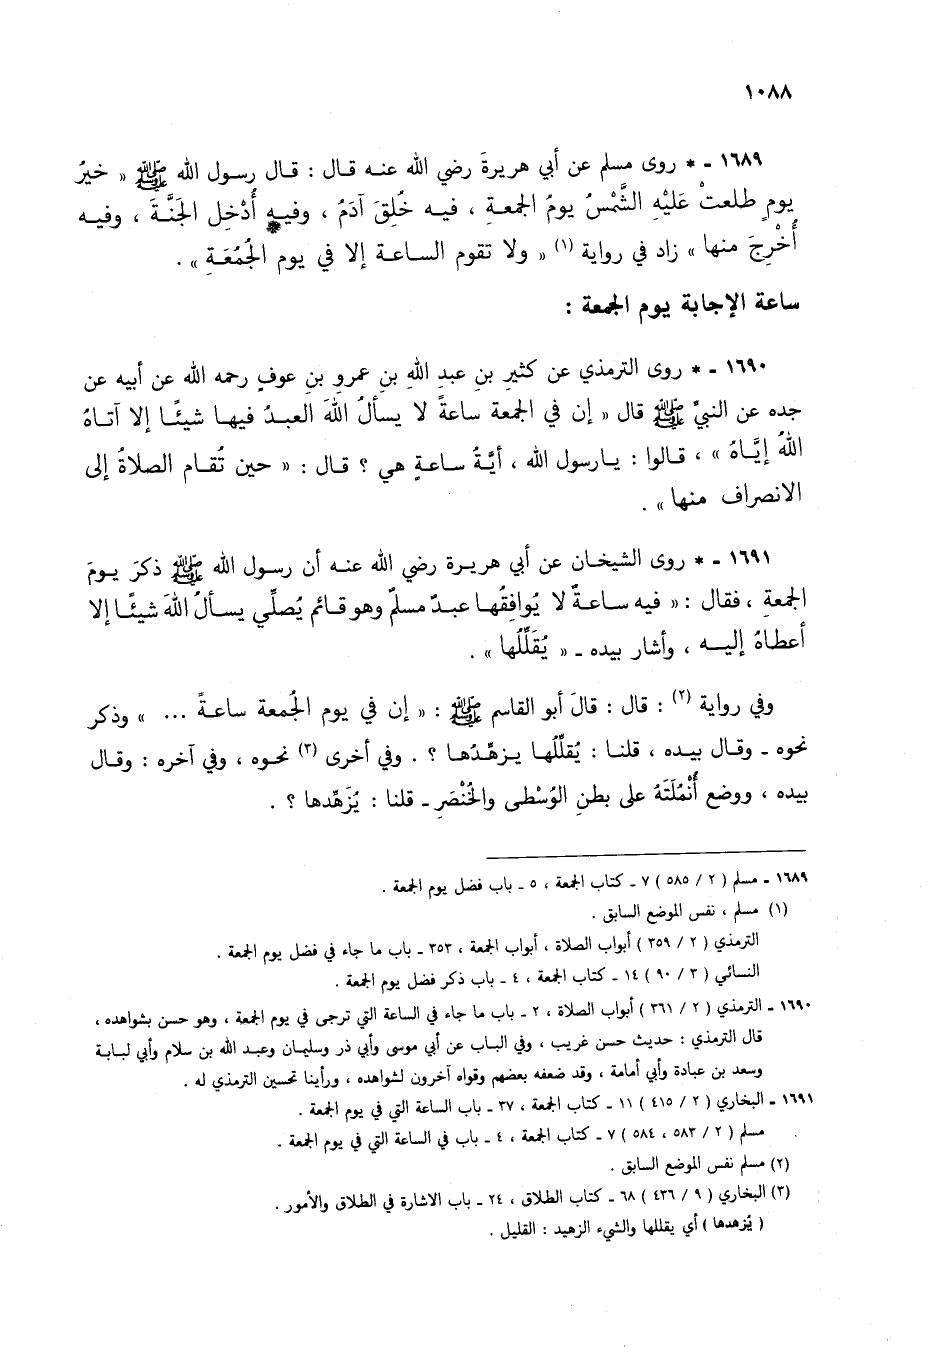 ١٠٨٨
١٦٨٩ - * روى مسلم عن أبي هريرةَ رضي الله عنه قال : قال رسول الله ﷺ « خيرُ
يومٍ طلعتْ عَلَيْهِ الشَّمْسُ يومُ الجمعةِ ، فيه خُلِقَ آدَمُ ، وفيهِ أُدْخِل الجَنَّةَ ، وفيه
أُخْرِجَ منها » زاد في رواية (١) « ولا تقوم الساعة إلا في يوم الجُمُعَةِ » .
ساعة الإجابة يوم الجمعة :
١٦٩٠ - * روى الترمذي عن كثيرِ بنِ عبدِ اللهِ بنِ عمرو بنِ عوفٍ رحمه الله عن أبيه عن
جده عن النبيِّ ﷺ قال « إن في الجمعة ساعةً لا يسألُ اللهَ العبدُ فيها شيئًا إلا آتاهُ
اللهُ إيَّاهُ » ، قالوا : يارسول الله ، أيَّةُ ساعةٍ هي ؟ قال : « حين تُقام الصلاةُ إلى
الانصراف منها » .
١٦٩١ - * روى الشيخان عن أبي هريرة رضي الله عنه أن رسول الله ﷺ ذكرَ يومَ
الجمعةِ ، فقال : « فيه ساعةٌ لا يُوافِقُها عبدٌ مسلمٌ وهو قائم يُصلِّي يسألُ اللهَ شيئًا إلا
أعطاهُ إليه ، وأشار بيده - « يُقَلِّلُها » .
وفي رواية (٢) : قال : قالَ أبو القاسم ﷺ : « إن في يوم الجُمعة ساعةً ... » وذكر
نحوه - وقال بيده ، قلنا : يُقلِّلُها يزهِّدُها ؟ . وفي أخرى (٣) نحوه ، وفي آخره : وقال
بيده ، ووضع أُنْمُلَتَهُ على بطنِ الوُسْطى والخُنْصَرِ - قلنا : يُزَهِّدها ؟ .
١٦٨٩ - مسلم ( ٢ / ٥٨٥ ) ٧ - كتاب الجمعة ، ٥ - باب فضل يوم الجمعة .
(١) مسلم ، نفس الموضع السابق .
الترمذي ( ٢ / ٣٥٩ ) أبواب الصلاة ، أبواب الجمعة ، ٣٥٣ - باب ما جاء في فضل يوم الجمعة .
النسائي ( ٣ / ٩٠ ) ١٤ - كتاب الجمعة ، ٤ - باب ذكر فضل يوم الجمعة .
١٦٩٠ - الترمذي ( ٢ / ٣٦١ ) أبواب الصلاة ، ٢ - باب ما جاء في الساعة التي ترجى في يوم الجمعة ، وهو حسن بشواهده ،
قال الترمذي : حديث حسن غريب ، وفي الباب عن أبي موسى وأبي ذر وسليمان وعبد الله بن سلام وأبي لبابة
وسعد بن عبادة وأبي أمامة ، وقد ضعفه بعضهم وقواه آخرون لشواهده ، ورأينا تحسين الترمذي له .
١٦٩١ - البخاري ( ٢ / ٤١٥ ) ١١ - كتاب الجمعة ، ٣٧ - باب الساعة التي في يوم الجمعة .
مسلم ( ٢ / ٥٨٣ ، ٥٨٤ ) ٧ - كتاب الجمعة ، ٤ - باب في الساعة التي في يوم الجمعة .
(٢) مسلم نفس الموضع السابق .
(٣) البخاري ( ٩ / ٤٣٦ ) ٦٨ - كتاب الطلاق ، ٢٤ - باب الاشارة في الطلاق والأمور .
( يُزهدها ) أي يقللها والشيء الزهيد : القليل .